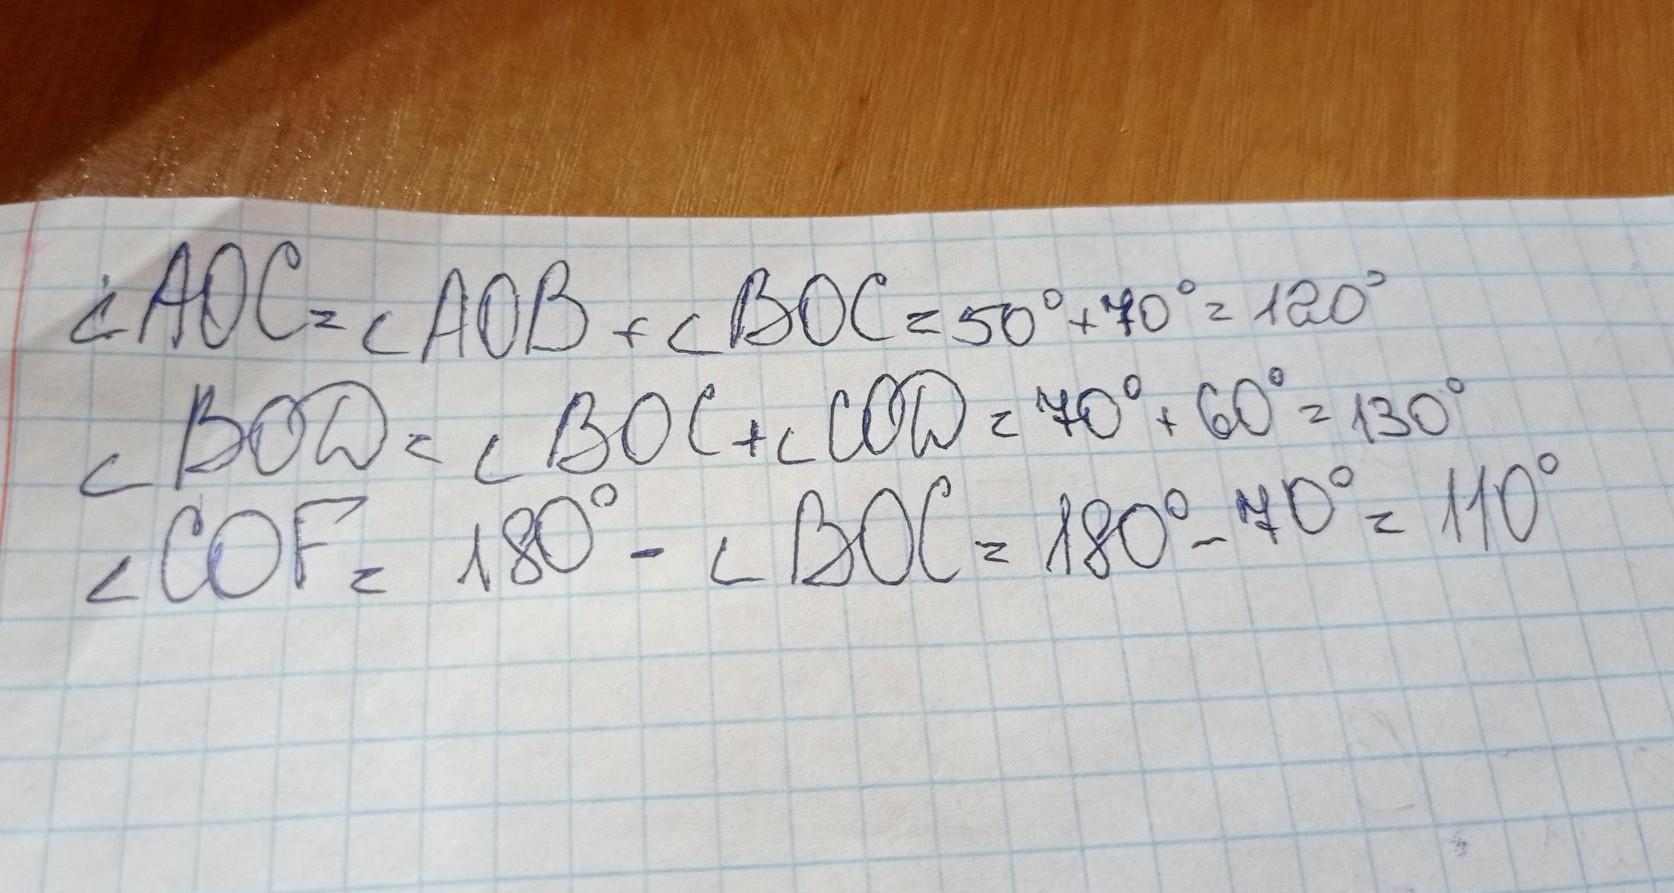 ∠AOC = ∠AOB + ∠BOC = 50° + 70° = 120°
∠BOD = ∠BOC + ∠COD = 70° + 60° = 130°
∠COF = 180° - ∠BOC = 180° - 70° = 110°